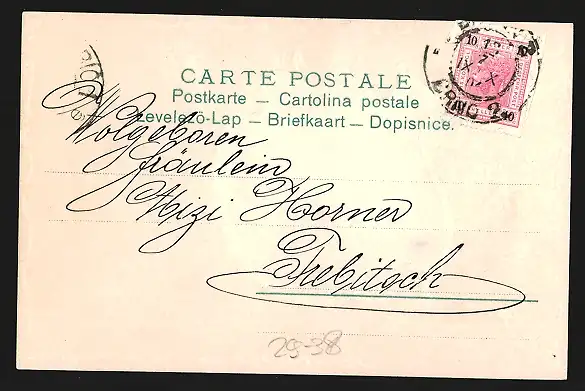 CARTE POSTALE
Postkarte — Cartolina postale
Levelező-Lap — Briefkaart — Dopisnice.
Wolgeboren
Fräulein
Mizi Horner
Trebitsch
29-38
10 10
10 10